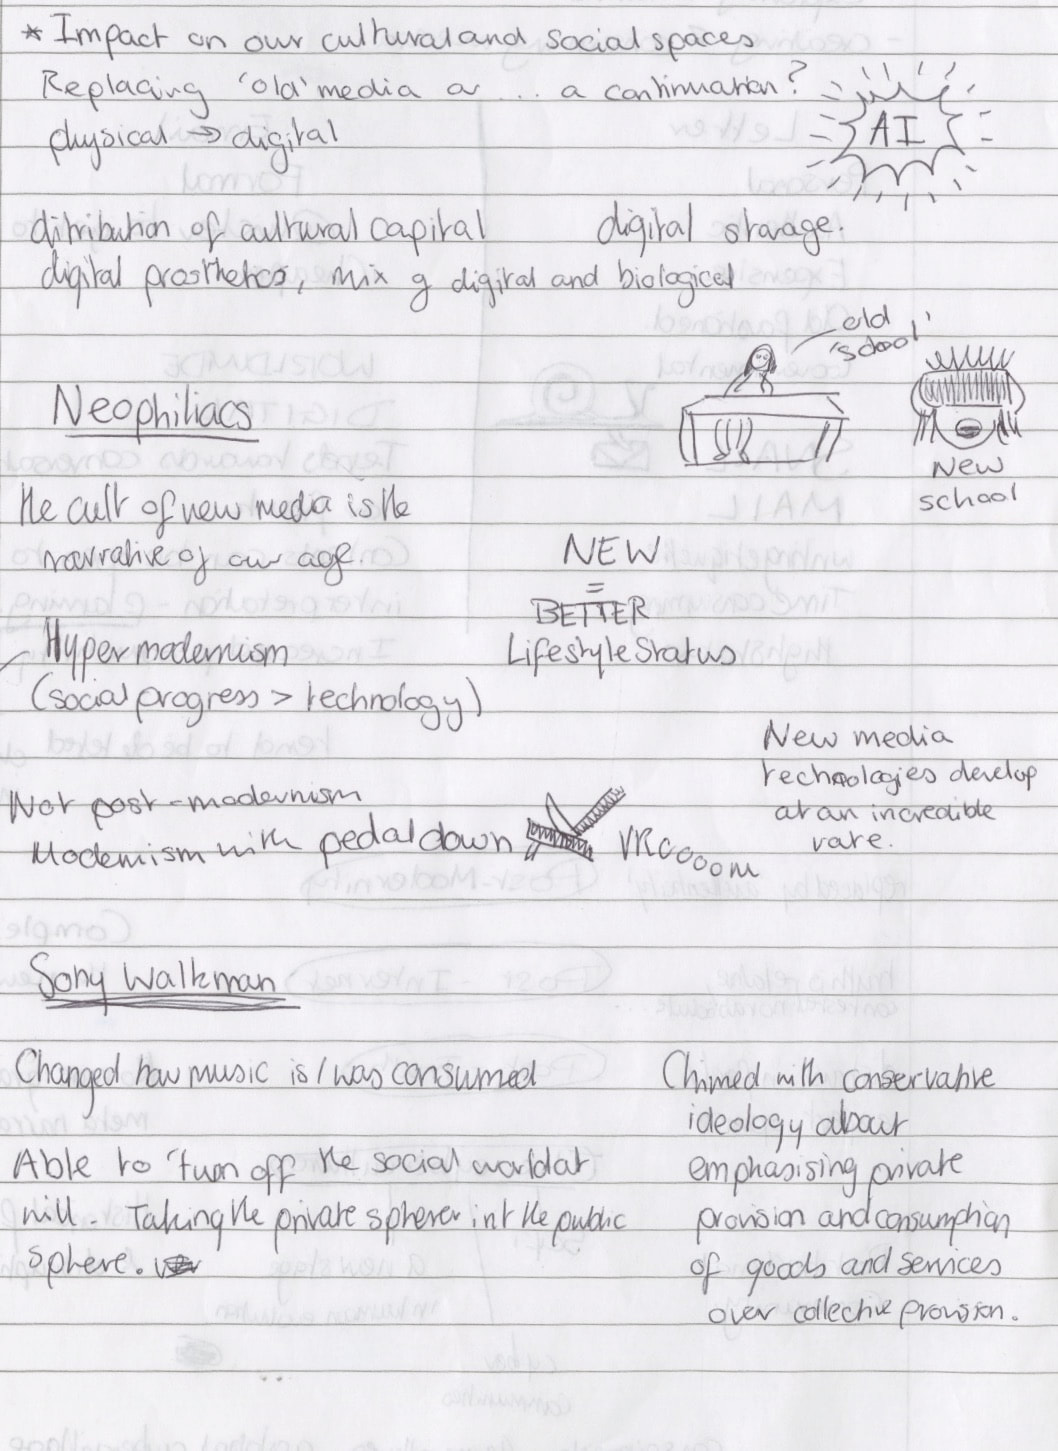 * Impact on our cultural and social spaces
Replacing 'old' media or ... a continuation?
physical → digital
AI
ditribution of cultural capital
digital storage.
digital prosthetics, mix of digital and biological
old 'school'
New school
Neophiliacs
the cult of new media is the
narrative of our age.
NEW
=
BETTER
Lifestyle Status
Hypermodernism
(social progress > technology)
New media
technologies develop
at an incredible
rate.
Not post-modernism
Modernism with pedal down
VRooooom
Sony Walkman
Changed how music is / was consumed
Able to 'turn off the social world at
will. Taking the private spherer int the public
sphere.
Chimed with conservative
ideology about
emphasising private
provision and consumption
of goods and services
over collective provision.